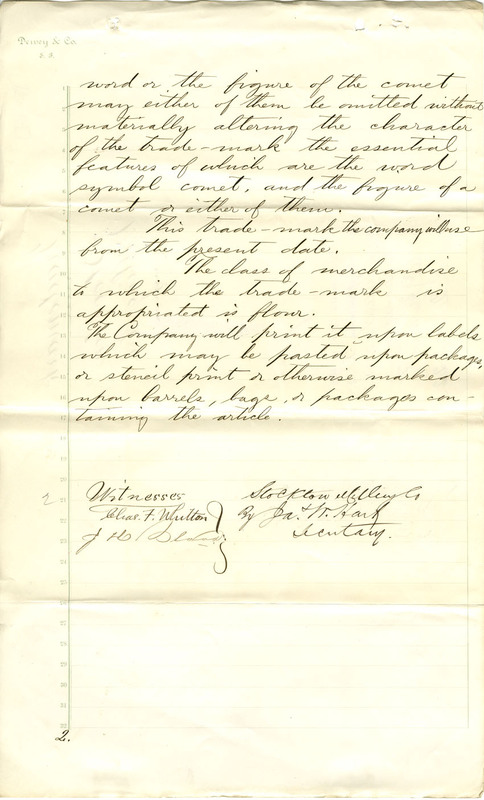 Dewey & Co.
S. F.
word or the figure of the comet
may either of them be omitted without
materially altering the character
of the trade-mark the essential
features of which are the word
symbol comet, and the figure of a
comet or either of them.
This trade-mark the company will use
from the present date.
The class of merchandise
to which the trade-mark is
appropriated is flour.
The Company will print it upon labels
which may be pasted upon packages,
or stencil print or otherwise marked
upon barrels, bags, or packages con-
taining the article.
Witnesses
Chas. F. Whitton
J
Stockton Milling Co
By Ja. W. Hart
Secretary.
2.